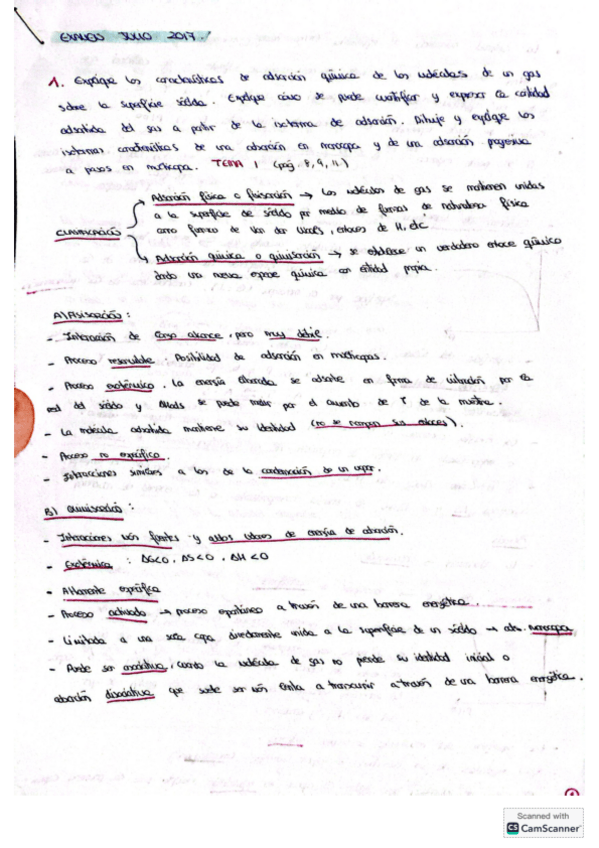 EXAMEN JULIO 2017.
1. Explique las características de adsorción química de las moléculas de un gas
sobre la superficie sólida. Explique cómo se puede cuantificar y expresar la cantidad
adsorbida del gas a partir de la isoterma de adsorción. Dibuje y explique las
isotermas características de una adsorción en monocapa y de una adsorción progresiva
a pasos en multicapa. TEMA 1 (pág. 8, 9, 11.)
CLASIFICACIÓN
Adsorción física o fisisorción → Las moléculas de gas se mantienen unidas
a la superficie de sólido por medio de fuerzas de naturaleza física
como fuerzas de Van der Waals, enlaces de H, etc
Adsorción química o quimisorción → se establece un verdadero enlace químico
dado una nueva especie química con entidad propia.
A) Fisisorción:
- Interacción de largo alcance, pero muy débil.
- Proceso reversible: Posibilidad de adsorción en multicapas.
- Proceso exotérmico. La energía liberada se absorbe en forma de vibración por la
red del sólido y ΔHads se puede medir por el aumento de T de la muestra.
- La molécula adsorbida mantiene su identidad (no se rompen sus enlaces).
- Proceso no específico.
- Interacciones similares a las de la condensación de un vapor.
B) Quimisorción:
- Interacciones más fuertes y altos valores de energía de adsorción.
- Exotérmica: ΔG<0, ΔS<0, ΔH<0
- Altamente específica
- Proceso activado → proceso espontáneo a través de una barrera energética.
- Limitada a una sola capa directamente unida a la superficie de un sólido → ads. monocapa
- Puede ser asociativa, cuando la molécula de gas no pierde su identidad inicial o
absorción disociativa que suele ser más lenta a transcurrir a través de una barrera energética.
Scanned with
CS CamScanner